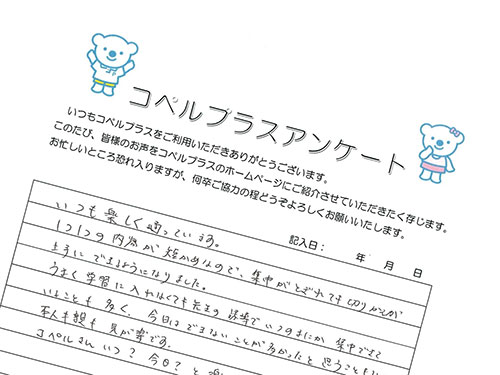 コペルプラスアンケート
いつもコペルプラスをご利用いただきありがとうございます。
このたび、皆様のお声をコペルプラスのホームページにご紹介させていただきたく存じます。
お忙しいところ恐れ入りますが、何卒ご協力の程どうぞよろしくお願いいたします。
記入日： 年 月 日
いつも楽しく通っています。
1つ1つの内容が短かめなので、集中がとぎれても切りかえが
上手にできるようになりました。
うまく学習に入れなくても先生の誘導でいつのまにか集中できて
いることも多く、今日はできないことが多かったと思うことも
本人も親も気が楽です。
コペルさんいつ？今日？と